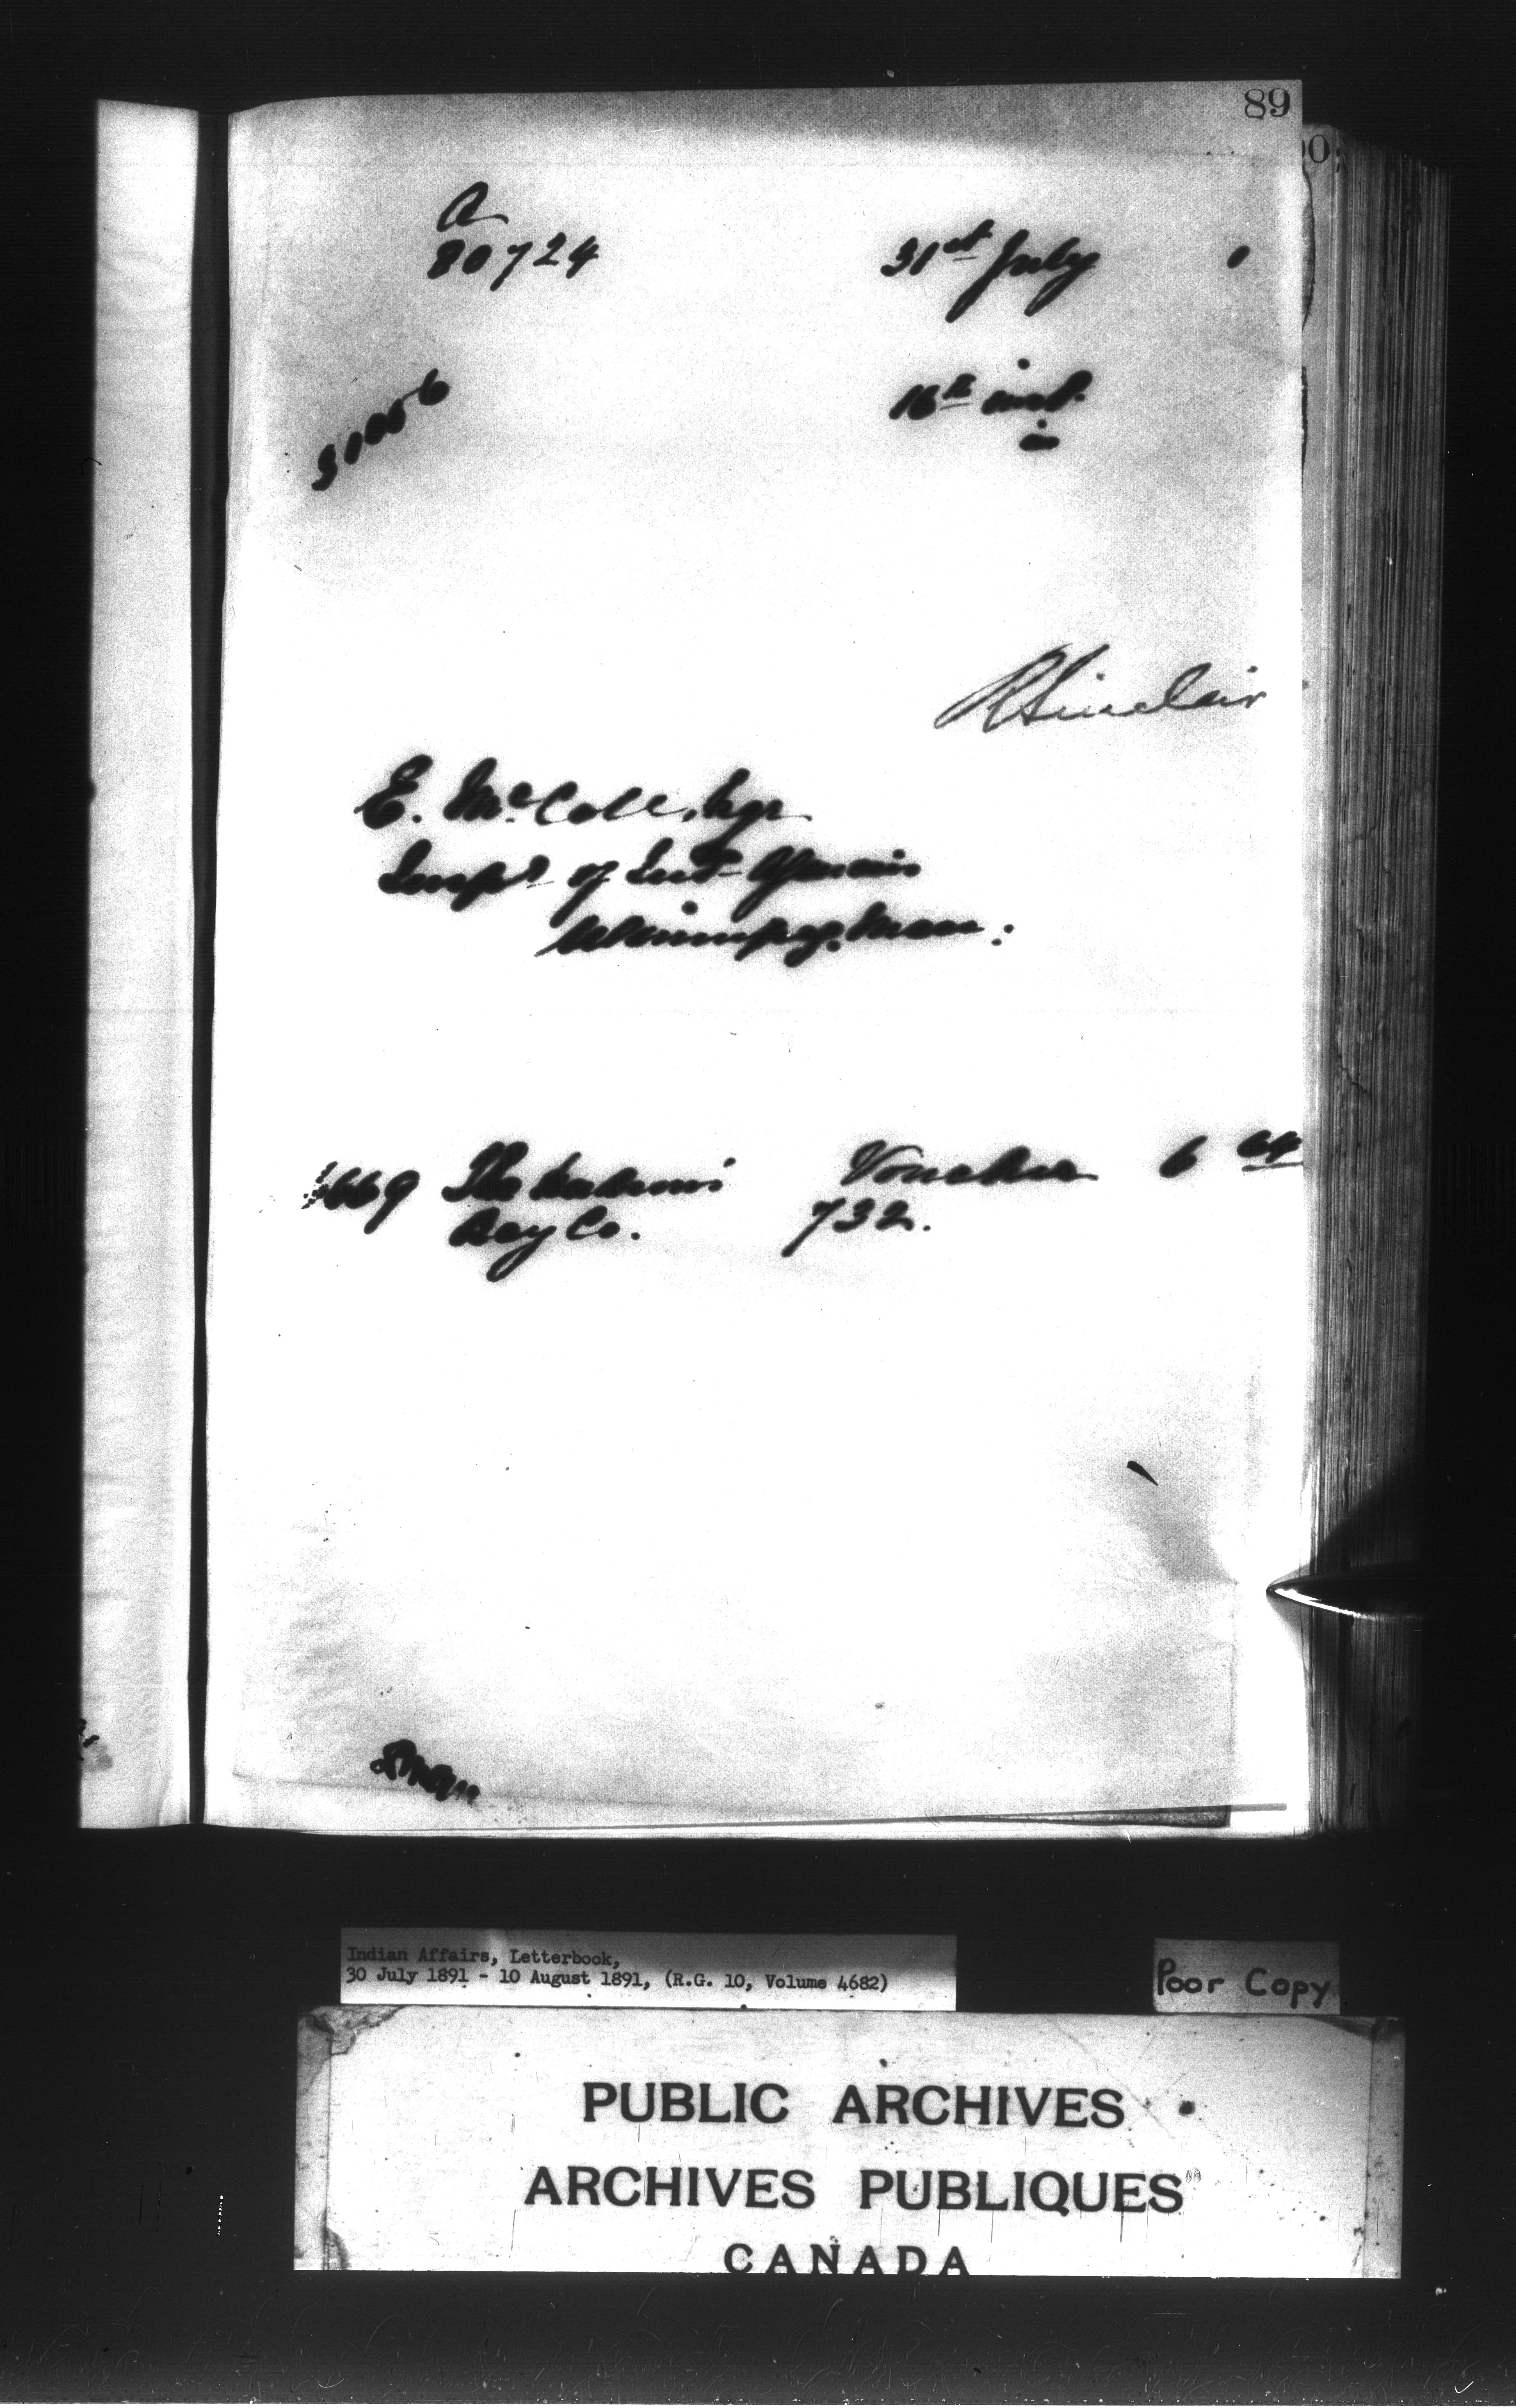 89
A
80724
31st July
16th inst.
in
R Sinclair
E. McColl, Esqr
Inspr of Ind Affairs
Winnipeg, Man:
669 The Hudson's Voucher 6 64
Bay Co. 732.
Indian Affairs, Letterbook,
30 July 1891 - 10 August 1891, (R.G. 10, Volume 4682)
Poor Copy
PUBLIC ARCHIVES
ARCHIVES PUBLIQUES
CANADA